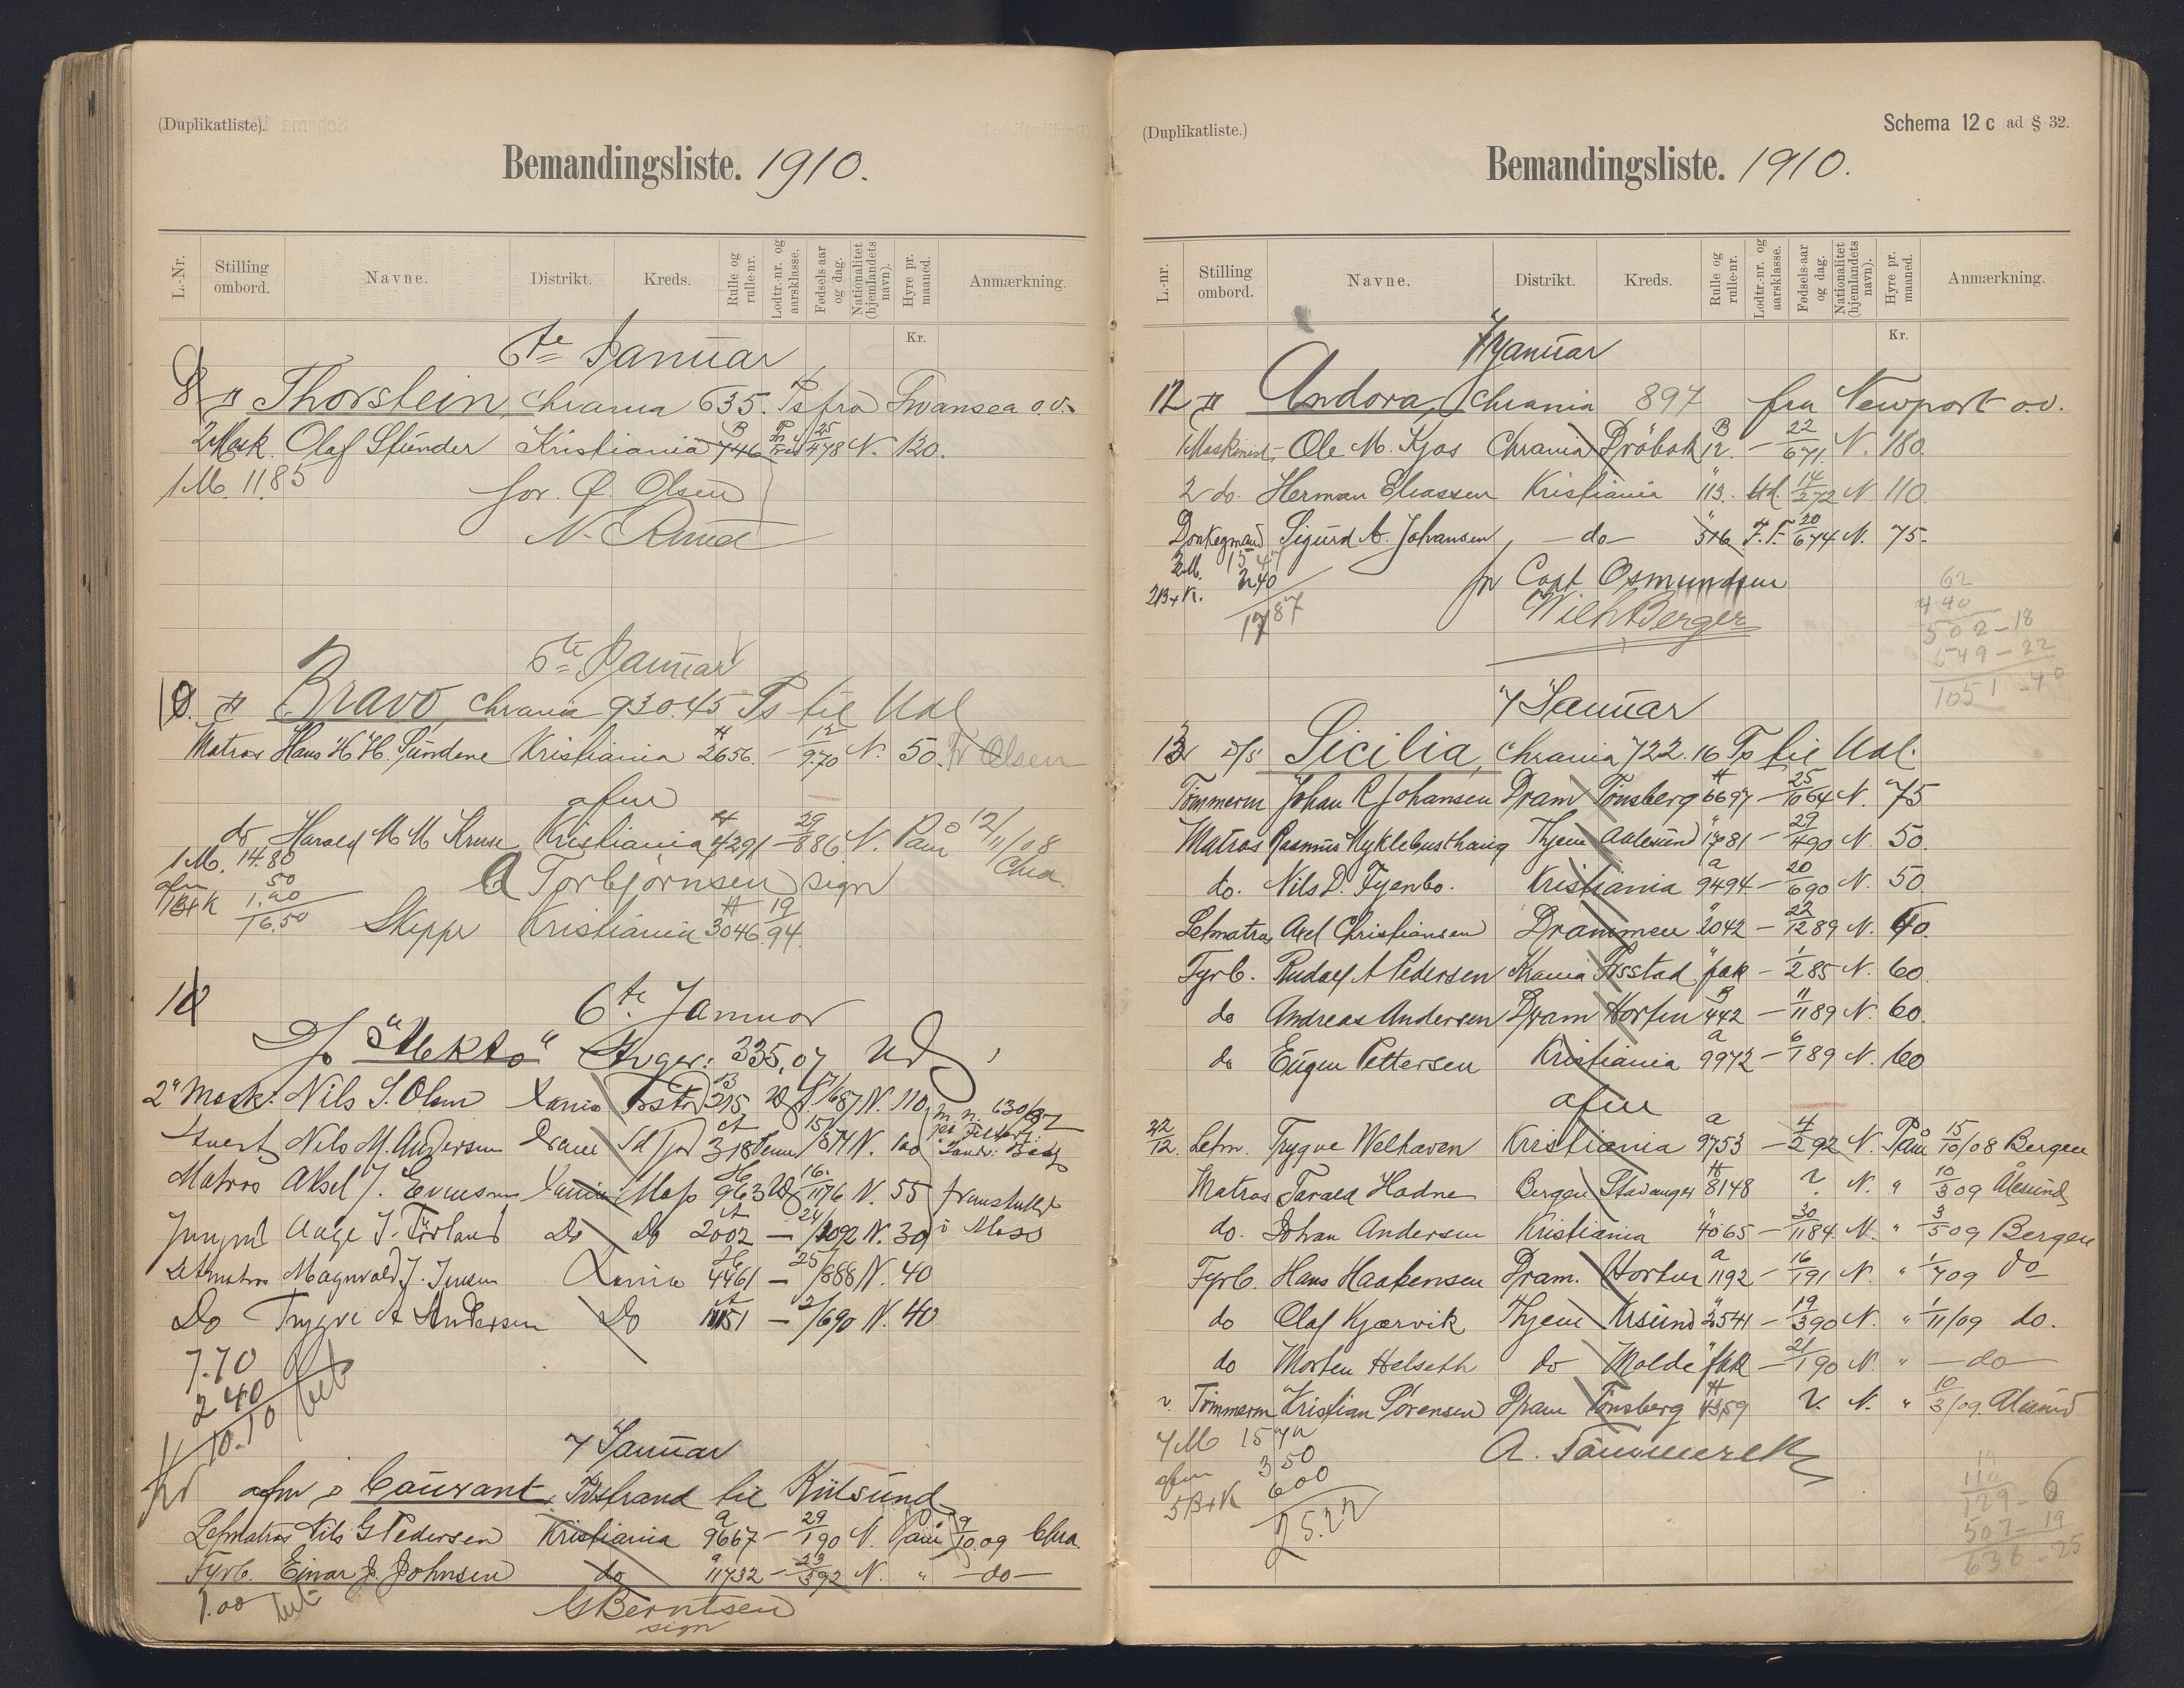 (Duplikatliste).
Bemandingsliste. 1910.
L.-Nr. Stilling ombord. Navne. Distrikt. Kreds. Rulle og rulle-nr. Lodtr.-nr. og aarsklasse. Fødsels-aar og dag. Nationalitet (hjemlandets navn). Hyre pr. maaned. Anmærkning.
Kr.
6te Januar
Thorstein, Chrania 635. Ts fra Swansea o.v.
2 Mask. Olaf Stünder Kristiania B 746 25/4 78 N. 120.
1 M. 11.85 for. O. Olsen
N. Ruud
6te Januar
Bravo, Chrania 930.45 Ts til Udl
Matros Hans H. H. Sundene Kristiania H 2656 - 12/9 70 N. 50. Fr Olsen
afm
do Harald M M Kruse Kristiania H 4291 - 29/8 86 N. Paa 12/11/08 Chra.
1 M. 14.80
afm 50
1B+K 1.20
16.50
A Torbjørnsen sign
Skipper Kristiania H 3046 19/94.
6te Januar
"Mekto" 335,07 Ud
2den Mask. Nils S. Olsen Xania B 215 17/6 87 N. 110
Stuert Nils M. Andersen Dram A 318 15/8 74 N. 100
Matros Aksel J. Evensen Xania Moss H 963 16/11 76 N. 55 framstillet
Jungm Aage J. Førland Do Do A 2002 - 24/10 92 N. 30 i Moss
Letmatros Magnvald J. Jensen Xania H 4461 - 25/8 88 N. 40
Do Trygve A Andersen Do A 11151 - 2/6 90 N. 40
7.70
2 40
10.10
7 Januar
afm Courant, Kristrand til Kilsund
Letmatros Nils G Pedersen Kristiania a 9667 - 29/1 90 N. Paam 9/10.09 Chra.
Fyrb. Einar J. Johnsen do " 11732 - 23/3 92 N. " - do -
1.00
G Berntsen
sign
(Duplikatliste.)
Schema 12 c ad § 32.
Bemandingsliste. 1910.
L.-nr. Stilling ombord. Navne. Distrikt. Kreds. Rulle og rulle-nr. Lodtr.-nr. og aarsklasse. Fødsels-aar og dag. Nationalitet (hjemlandets navn). Hyre pr. maaned. Anmærkning.
Kr.
7 Januar
12 Andora, Chrania 897 fra Newport o.v.
1 Maskinist Ole M. Kjos Chrania Drøbak B 12. - 22/6 71. N. 180.
2 do. Herman Eliassen Kristiania " 113. Ud. 14/2 72 N. 110.
Donkeymand Sigurd A. Johansen, - do - " 516 F.F. 20/6 74 N. 75.
3 M. 15 47
2B+K. 2 40
17 87
for Capt. Osmundsen
Wilh Berger
62
440
502 - 18
549 - 22
1051 - 40
7 Januar
13 D/S Sicilia, Chrania 722.16 Ts til Udl.
Tømmerm Johan R Johansen Dram Tønsberg H 6697 - 25/10 64 N. 75
Matros Rasmus Myklebusthaug Thjem Aalesund " 17081 - 29/4 90 N. 50.
do. Nils D. Fyenbo. Kristiania a 9494 - 20/6 90 N. 50.
Letmatros Axel Christiansen Drammen " 2042 - 22/12 89 N. 40.
Fyrb. Rudolf A Pedersen Krania Frsstad " fak - 1/2 85 N. 60.
do Andreas Andersen Dram Horten B 442 - 11/11 89 N. 60.
do Eugen Pettersen Kristiania a 9972 - 6/1 89 N. 60
afm
22/12. Letm. Trygve Welhaven Kristiania a 9753 - 4/2 92 N. Paam 15/10/08 Bergen
Matros Tarald Hodne Bergen Stavanger H 8148 ? N. " 10/3 09 Ålesund
do. Johan Andersen Kristiania " 4065 - 30/11 84. N. " 3/5 09 Bergen
Fyrb. Hans Haakensen Dram. Horten a 1192 - 16/1 91 N. " 1/7 09 do
do Olaf Kjærvik Thjem Krsund " 2541 - 19/3 90 N. " 1/11/09 do.
do Morten Helseth do Molde " fak - 21/1 90 N. " - do -
Tømmerm Kristian Sørensen Dram Tønsberg H 4359 ? N. " 10/3/09. Alesund
7 M 15 72
afm 3 50
5B+K 6 00
25.22
19
110
129 - 6
507 - 19
636 - 25